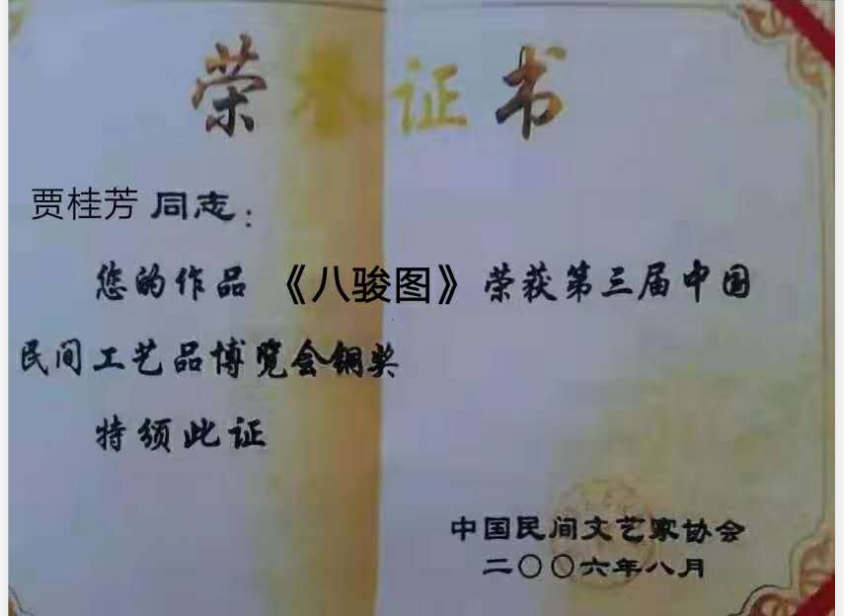 荣誉证书
贾桂芳 同志：
您的作品《八骏图》荣获第三届中国
民间工艺品博览会铜奖
特颁此证
中国民间文艺家协会
二〇〇六年八月